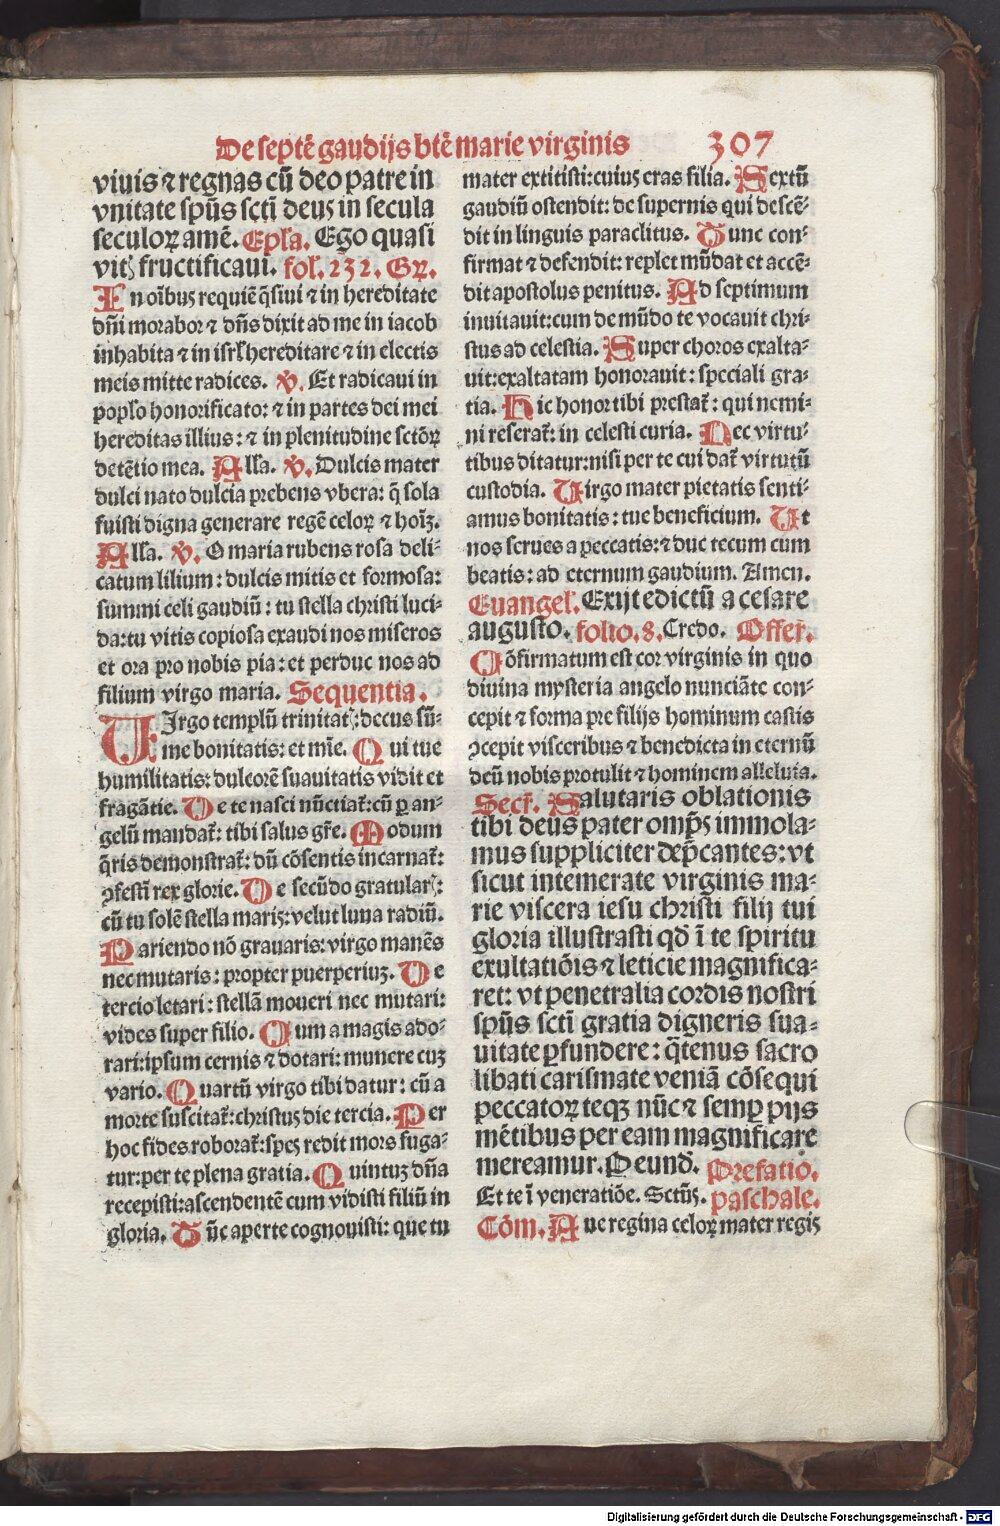 De septē gaudijs btē marie virginis 307
viuis ⁊ regnas cū deo patre in
vnitate spūs scti deus in secula
seculoꝝ amē. Epl'a. Ego quasi
vitꝭ fructificaui. fol'. 232. Gꝝ.
In oībus requiē q̄siui ⁊ in hereditate
dn̄i morabor ⁊ dn̄s dixit ad me in iacob
inhabita ⁊ in isrl' hereditare ⁊ in electis
meis mitte radices. v̄. Et radicaui in
popl'o honorificato: ⁊ in partes dei mei
hereditas illius: ⁊ in plenitudine sctōꝝ
detētio mea. All'a. v̄. Dulcis mater
dulci nato dulcia prebens vbera: q̄ sola
fuisti digna generare regē celoꝝ ⁊ hoīꝫ.
All'a. v̄. O maria rubens rosa deli⸗
catum lilium: dulcis mitis et formosa:
summi celi gaudiū: tu stella christi luci⸗
da: tu vitis copiosa exaudi nos miseros
et ora pro nobis pia: et perduc nos ad
filium virgo maria. Sequentia.
VIrgo templū trinitatꝭ: decus sū⸗
me bonitatis: et mīe. Qui tue
humilitatis: dulcorē suauitatis vidit et
fragātie. De te nasci nūctiat̄: cū ꝑ an⸗
gelū mandat̄: tibi salus gr̄e. Modum
q̄ris demonstrat̄: dū cōsentis incarnat̄:
ꝯfestī rex glorie. De secūdo gratularꝭ:
cū tu solē stella maris: velut luna radiū.
Pariendo nō grauaris: virgo manēs
nec mutaris: propter puerperiuꝫ. De
tercio letari: stellā moueri nec mutari:
vides super filio. Cum a magis ado⸗
rari: ipsum cernis ⁊ dotari: munere cuꝫ
vario. Quartū virgo tibi datur: cū a
morte suscitat̄: christus die tercia. Per
hoc fides roborat̄: spes redit mors fuga⸗
tur: per te plena gratia. Quintuꝫ dn̄a
recepisti: ascendentē cum vidisti filiū in
gloria. Tūc aperte cognouisti: que tu
mater extitisti: cuius eras filia. Sextū
gaudiū ostendit: de supernis qui descē⸗
dit in linguis paraclitus. Tunc con⸗
firmat ⁊ defendit: replet mūdat et accē⸗
dit apostolus penitus. Ad septimum
inuitauit: cum de mūdo te vocauit chri⸗
stus ad celestia. Super choros exalta⸗
uit: exaltatam honorauit: speciali gra⸗
tia. Hic honor tibi prestat̄: qui nemi⸗
ni reserat̄: in celesti curia. Nec virtu⸗
tibus ditatur: nisi per te cui dat̄ virtutū
custodia. Virgo mater pietatis senti⸗
amus bonitatis: tue beneficium. Ut
nos serues a peccatis: ⁊ duc tecum cum
beatis: ad eternum gaudium. Amen.
Euangel'. Exijt edictū a cesare
augusto. folio. 8. Credo. Offer̄.
Cōfirmatum est cor virginis in quo
diuina mysteria angelo nunciāte con⸗
cepit ⁊ forma pre filijs hominum castis
ꝯcepit visceribus ⁊ benedicta in eternū
deū nobis protulit ⁊ hominem alleluia.
Secr̄. Salutaris oblationis
tibi deus pater omp̄s immola⸗
mus suppliciter dep̄cantes: vt
sicut intemerate virginis ma⸗
rie viscera iesu christi filij tui
gloria illustrasti qd̄ ī te spiritu
exultatiōis ⁊ leticie magnifica⸗
ret: vt penetralia cordis nostri
spūs scti gratia digneris sua⸗
uitate ꝑfundere: q̄tenus sacro
libati carismate veniā cōsequi
peccatoꝝ teqꝫ nūc ⁊ semꝑ pijs
mētibus per eam magnificare
mereamur. Per eund̄. Prefatio.
Et te ī veneratiōe. Sctūs. paschale.
Cōm. Aue regina celoꝝ mater regis
Digitalisierung gefördert durch die Deutsche Forschungsgemeinschaft - DFG